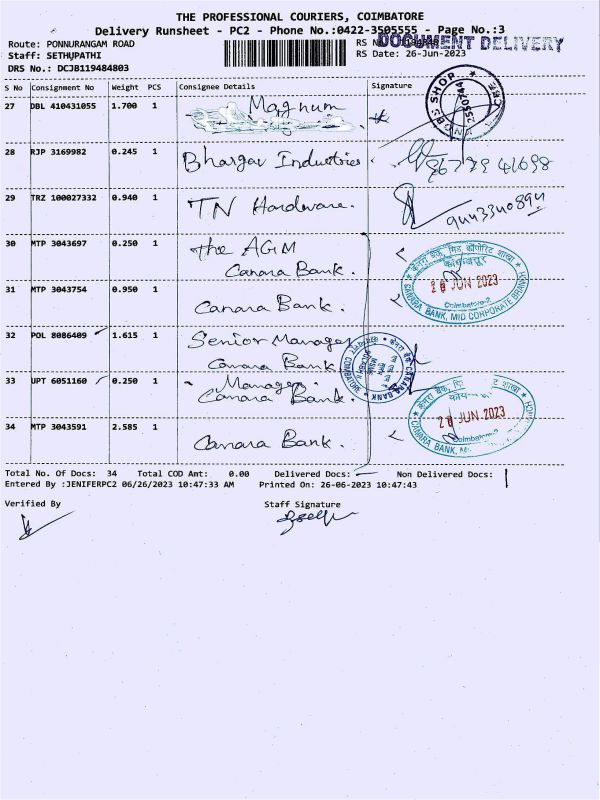 THE PROFESSIONAL COURIERS, COIMBATORE
Delivery Runsheet - PC2 - Phone No.:0422-3505555 - Page No.:3
Route: PONNURANGAM ROAD
DOCUMENT DELIVERY
Staff: SETHUPATHI RS Date: 26-Jun-2023
DRS No.: DCJB119484803
S No Consignment No Weight PCS Consignee Details Signature
27 DBL 410431055 1.700 1 Magnum
28 RJP 3169982 0.245 1 Bhargav Industries.
29 TRZ 100027332 0.940 1 TN Hardware.
30 MTP 3043697 0.250 1 The AGM
Canara Bank.
केनरा बैंक, मिड कॉर्पोरेट शाखा
26 JUN 2023
Coimbatore-2
CANARA BANK, MID CORPORATE BRANCH
31 MTP 3043754 0.950 1 Canara Bank.
32 POL 8086409 1.615 1 Senior Manager
Canara Bank
33 UPT 6051160 0.250 1 Manager.
Canara Bank.
CANARA BANK
COIMBATORE
34 MTP 3043591 2.585 1 Canara Bank.
26 JUN 2023
Coimbatore-2
CANARA BANK,
Total No. Of Docs: 34 Total COD Amt: 0.00 Delivered Docs: Non Delivered Docs:
Entered By :JENIFERPC2 06/26/2023 10:47:33 AM Printed On: 26-06-2023 10:47:43
Verified By Staff Signature